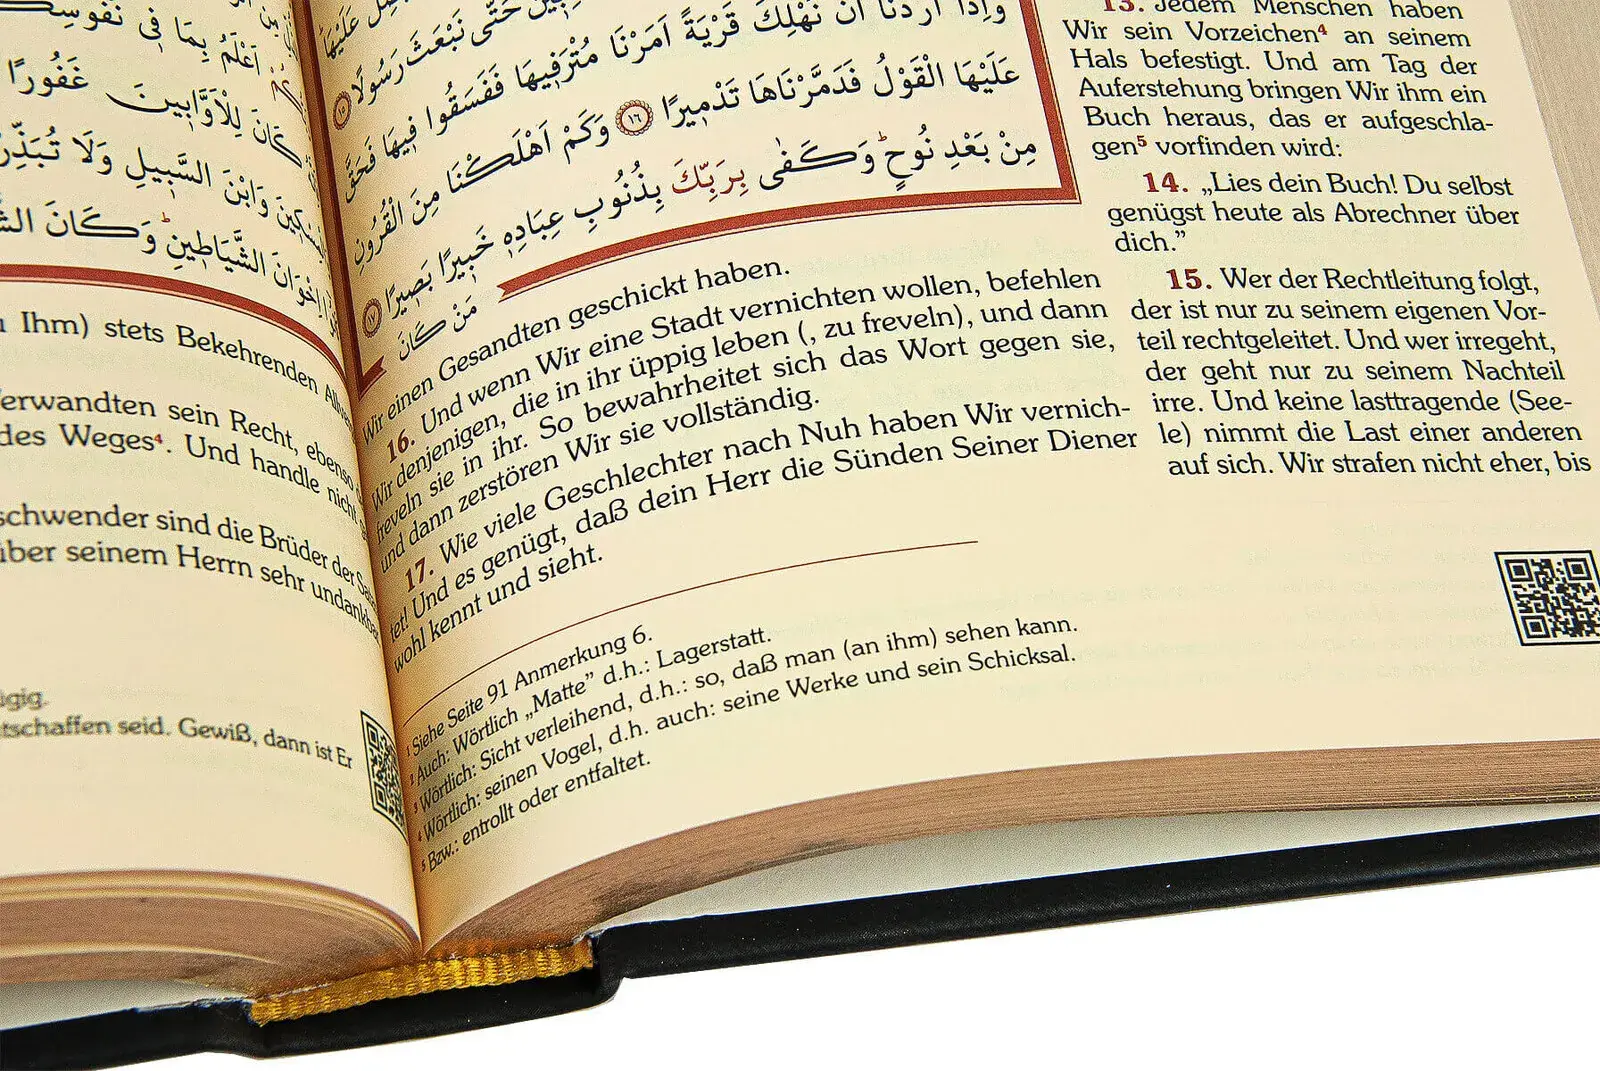 اَعْلَمُ بِمَا فٖى نُفُوسِكُمْ
كَانَ لِلْاَوَّابٖينَ غَفُورًا
وَابْنَ السَّبٖيلِ وَلَا تُبَذِّرْ
اِخْوَانَ الشَّيَاطٖينِ وَكَانَ
Ihm) stets Bekehrenden
erwandten sein Recht, ebenso
des Weges⁴. Und handle nicht
schwender sind die Brüder der
über seinem Herrn sehr undankbar
tschaffen seid. Gewiß, dann ist Er
حَتّٰى نَبْعَثَ رَسُولًا ١٥
وَاِذَا اَرَدْنَا اَنْ نُهْلِكَ قَرْيَةً اَمَرْنَا مُتْرَفٖيهَا فَفَسَقُوا فٖيهَا فَحَقَّ
عَلَيْهَا الْقَوْلُ فَدَمَّرْنَاهَا تَدْمٖيرًا ١٦ وَكَمْ اَهْلَكْنَا مِنَ الْقُرُونِ
مِنْ بَعْدِ نُوحٍ وَكَفٰى بِرَبِّكَ بِذُنُوبِ عِبَادِهٖ خَبٖيرًا بَصٖيرًا ١٧
مَنْ كَانَ
13. Jedem Menschen haben
Wir sein Vorzeichen⁴ an seinem
Hals befestigt. Und am Tag der
Auferstehung bringen Wir ihm ein
Buch heraus, das er aufgeschla-
gen⁵ vorfinden wird:
14. „Lies dein Buch! Du selbst
genügst heute als Abrechner über
dich.”
15. Wer der Rechtleitung folgt,
der ist nur zu seinem eigenen Vor-
teil rechtgeleitet. Und wer irregeht,
der geht nur zu seinem Nachteil
irre. Und keine lasttragende (See-
le) nimmt die Last einer anderen
auf sich. Wir strafen nicht eher, bis
Wir einen Gesandten geschickt haben.
16. Und wenn Wir eine Stadt vernichten wollen, befehlen
Wir denjenigen, die in ihr üppig leben (, zu freveln), und dann
freveln sie in ihr. So bewahrheitet sich das Wort gegen sie,
und dann zerstören Wir sie vollständig.
17. Wie viele Geschlechter nach Nuh haben Wir vernich-
tet! Und es genügt, daß dein Herr die Sünden Seiner Diener
wohl kennt und sieht.
¹ Siehe Seite 91 Anmerkung 6.
² Auch: Wörtlich „Matte” d.h.: Lagerstatt.
³ Wörtlich: Sicht verleihend, d.h.: so, daß man (an ihm) sehen kann.
⁴ Wörtlich: seinen Vogel, d.h. auch: seine Werke und sein Schicksal.
⁵ Bzw.: entrollt oder entfaltet.